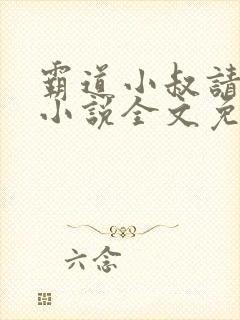 霸道小叔請
小說全文免
六念